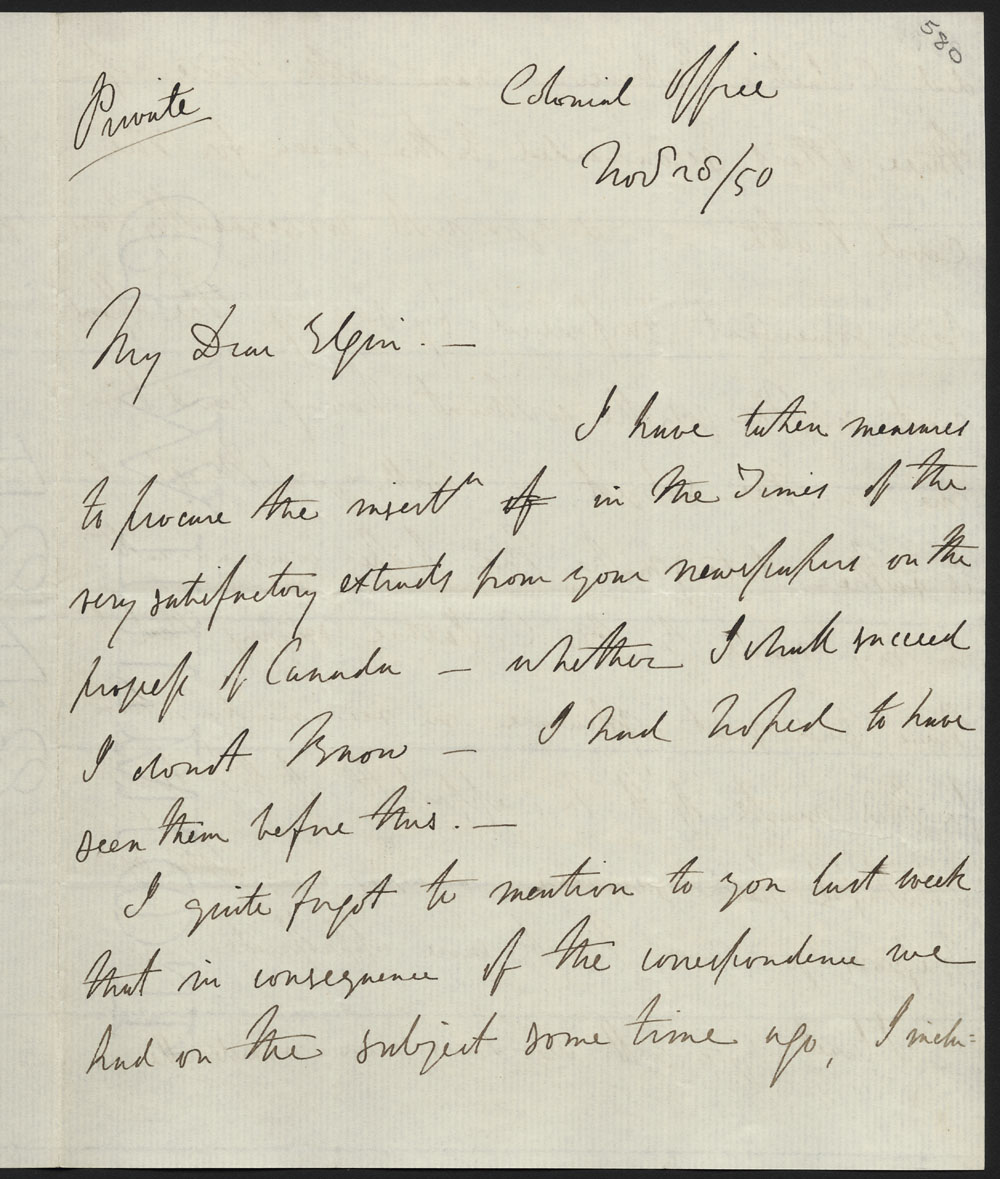 580
Private
Colonial Office
Novr 28/50
My Dear Elgin. —
I have taken measures
to procure the insertn of in the Times of the
very satisfactory extracts from your newspapers on the
progress of Canada — whether I shall succeed
I dont Know — I had hoped to have
seen them before this. —
I quite forgot to mention to you last week
that in consequence of the correspondence we
had on the subject some time ago, I inclu=